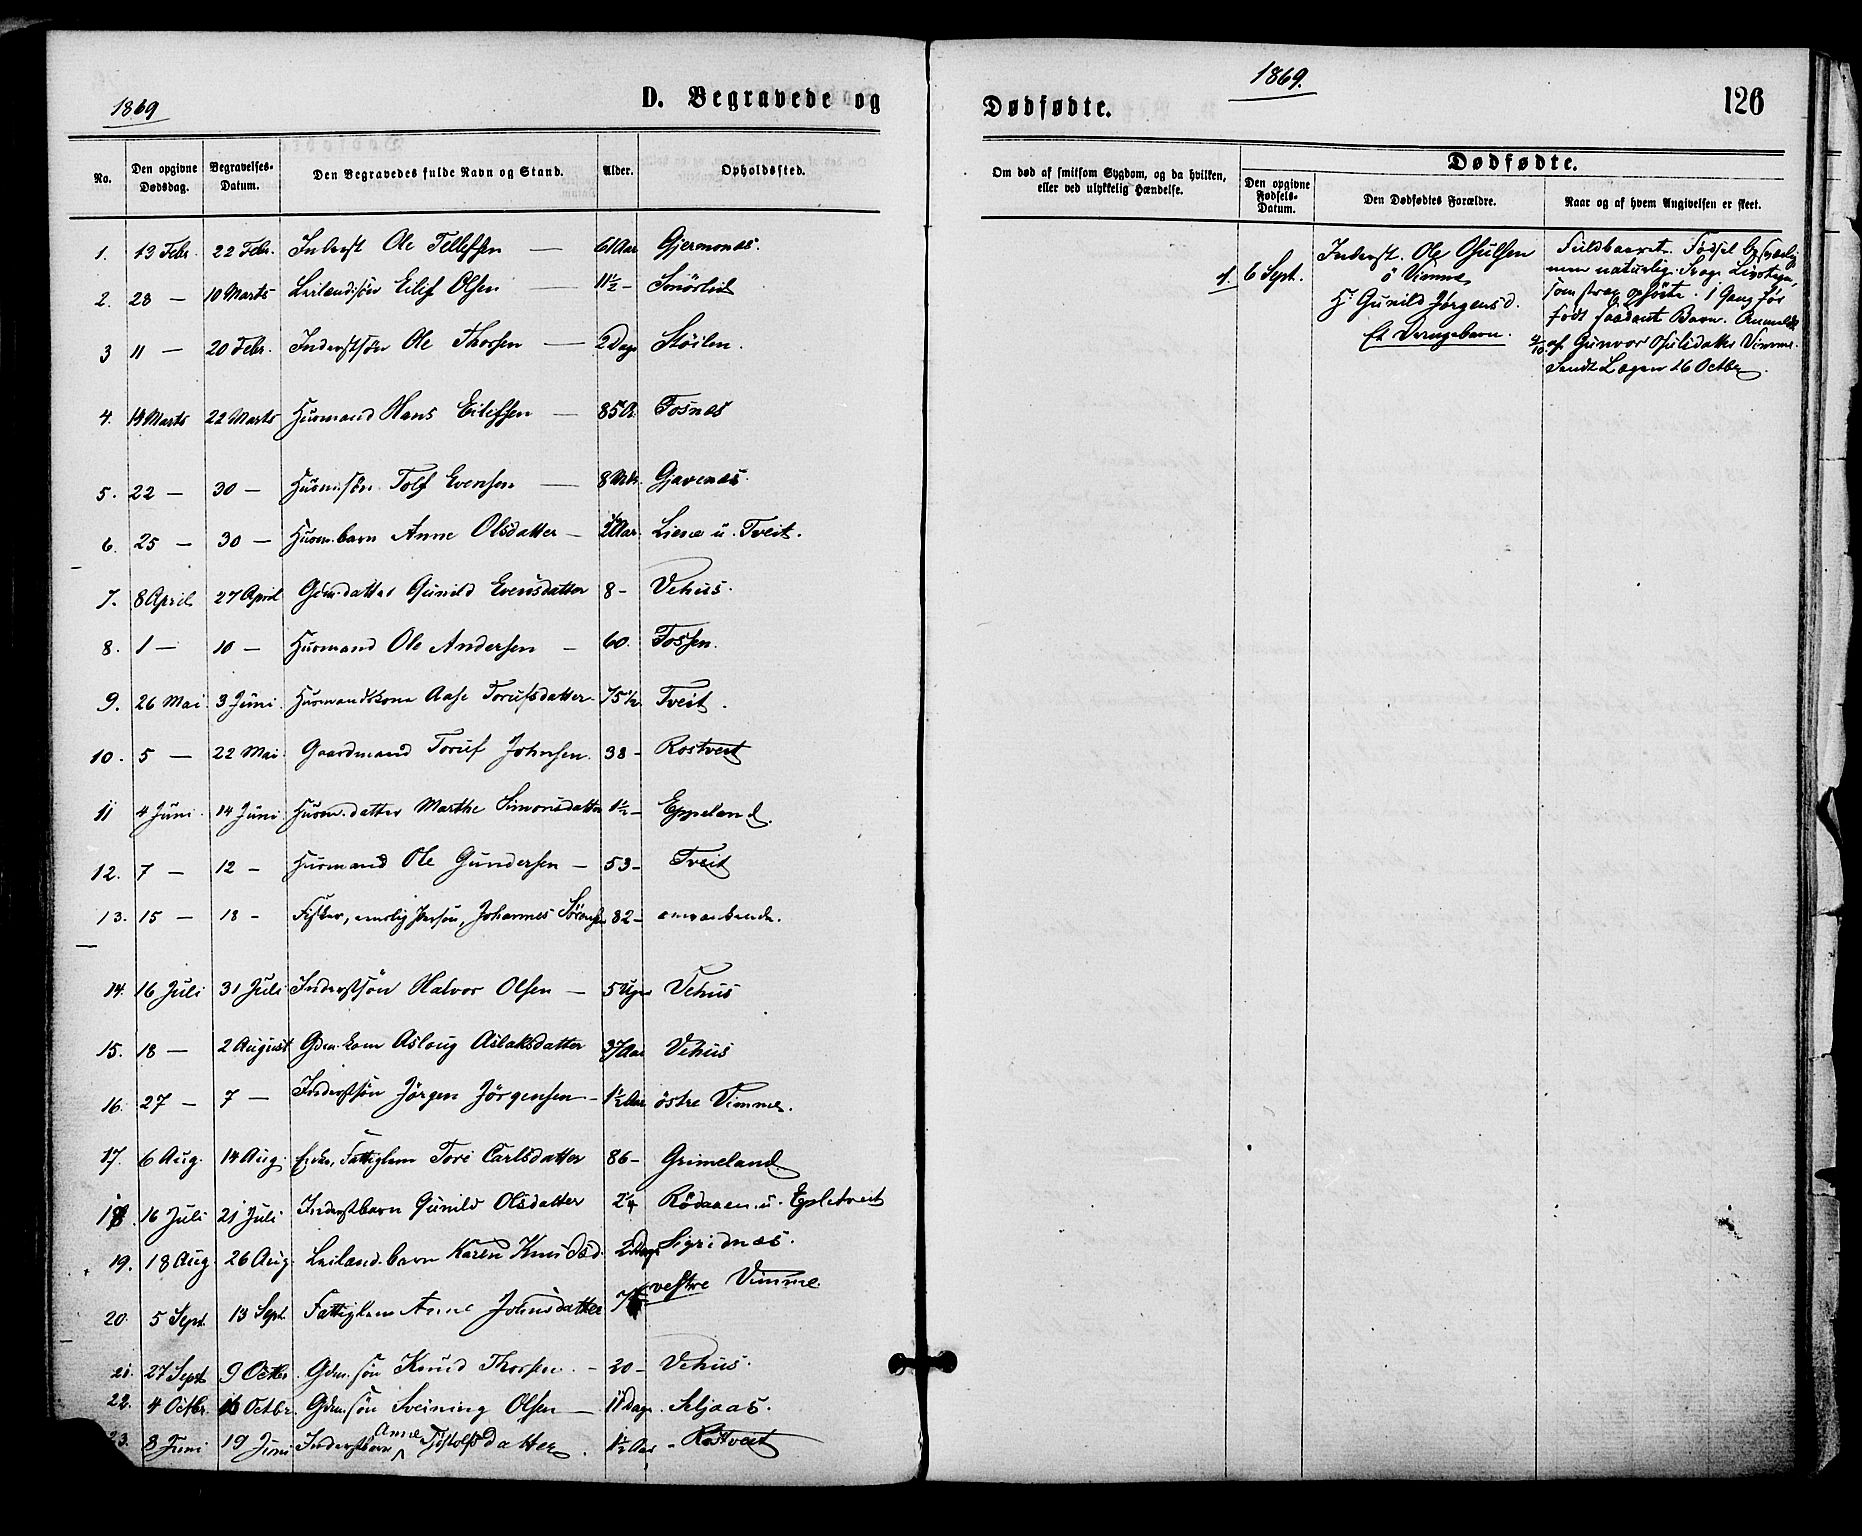 1869
D. Begravede og
No. Den opgivne Dødsdag. Begravelses-Datum. Den Begravedes fulde Navn og Stand. Alder. Opholdssted.
1. 13 Febr. 22 Febr. Inderst Ole Tellefsen — 61 Aar Gjermonæs.
2. 23 — 10 Marts Leilændisøn Eilef Olsen — 11½ - Smörlid
3 11 — 20 Febr. Inderstsøn Ole Thorsen — 2 Dage Stöilen.
4. 14 Marts 22 Marts Huusmand Hans Eilefsen — 85 A. Fosnæs
5. 22 — 30 — Huusm.søn Tolf Evensen — 8 Mdr. Gjavenæs.
6. 25 — 30 — Huusm.barn Anne Olsdatter — Aar. Liene u. Tveit.
7. 8 April 27 April Gdm.datter Gunild Evensdatter 8 - Vehus.
8. 1 — 10 — Huusmand Ole Andersen — 60. Fossen.
9. 26 Mai 3 Juni Huusmandskone Aase Torufsdatter 75½ Tveit.
10. 5 — 22 Mai. Gaardmand Toruf Johnsen. 38 - Rostveit
11 4 Juni 14 Juni. Huusm.datter Marthe Simonsdatter 1½ - Eppeland.
12. 7 — 12 — Huusmand Ole Gundersen — 53 - Tveit
13. 15 — 18 - Johannes 82 - omvankende.
14. 16 Juli 31 Juli Inderstsøn Halvor Olsen — 5 Uger Vehus
15. 18 — 2 August Gdm.kone Asloug Aslaksdatter 37 Aar Vehus
16. 27 — 7 — Inderstsøn Jørgen Jörgensen - 1½ Aar östre Vimme.
17. 6 Aug. 14 Aug. Enke, Fattiglem Tore Carlsdatter 86 - Grimeland
18. 16 Juli 21 Juli Inderstbarn Gunild Olsdatter Rödaaen u. Epletveit
19. 18 Aug 26 Aug. Leiland.barn Karen Knudsd. 2 Dage Sigridnæs.
20. 5 Sept. 13 Sept. Fattiglem Anne Johnsdatter vestre Vimme.
21. 27 Sept 9 Octbr. Gdm.søn Knud Thorsen. - 20 - Vehus.
22. 4 Octbr. 16 Octbr. Gdm.søn Sveining Olsen — 11 Dage. Seljaas.
23. 8 Juni 19 Juni Inderstbarn Anne datter. 1½ Aar - Rostveit
1869.
Dødfødte.
126
Om død af smitsom Sygdom, og da hvilken, eller ved ulykkelig Hændelse.
Dødfødte.
Den opgivne Fødsels-Datum. Den Dødfødtes Forældre. Naar og af hvem Angivelsen er skeet.
1. 6 Sept. Inderst. Ole Osulfsen
ö Vimme
H. Gunild Jørgensd.
Et Drengebarn.
Fuldbaaret. Fødsel besværlig
men naturlig. Svage Livstegn,
som strax ophörte. 1 Gang før
født saadant Barn. Anmeldt
af Gunvor Osulsdatter Vimme.
Sendt Lægen 26 Octbr.